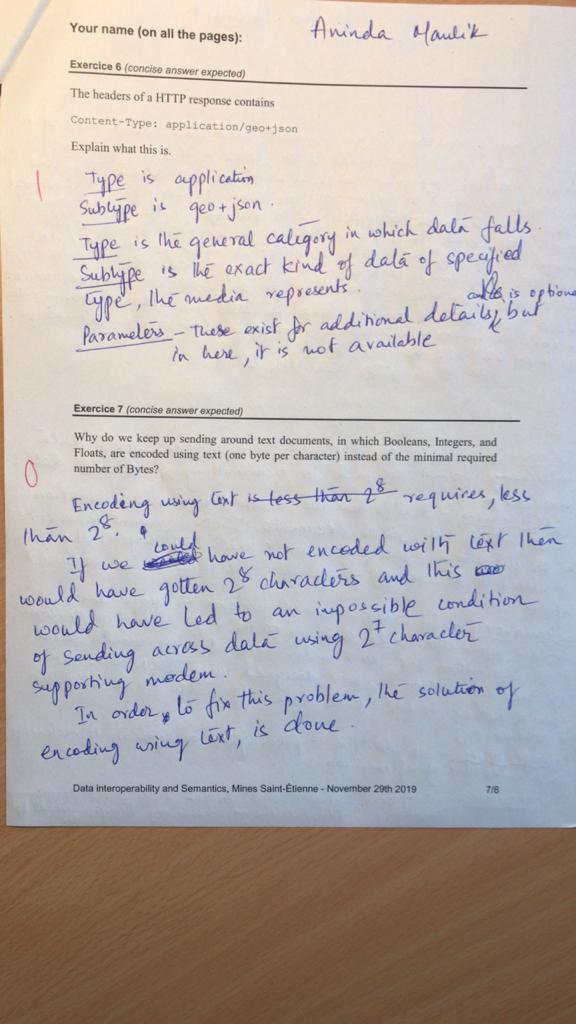 Your name (on all the pages): Aninda Maulik
Exercice 6 (concise answer expected)
The headers of a HTTP response contains
Content-Type: application/geo+json
Explain what this is.
1
Type is application
Subtype is geo+json.
Type is the general category in which data falls.
Subtype is the exact kind of data of specified
type, the media represents.
is optional
Parameters – These exist for additional details, but
in here, it is not available
Exercice 7 (concise answer expected)
Why do we keep up sending around text documents, in which Booleans, Integers, and
Floats, are encoded using text (one byte per character) instead of the minimal required
number of Bytes?
0
Encoding using text is less than 2^8 requires, less
than 2^8.
If we could have not encoded with text then
would have gotten 2^8 characters and this
would have led to an impossible condition
of sending across data using 2^7 character
supporting modem.
In order, to fix this problem, the solution of
encoding using text, is done.
Data interoperability and Semantics, Mines Saint-Étienne - November 29th 2019 7/8